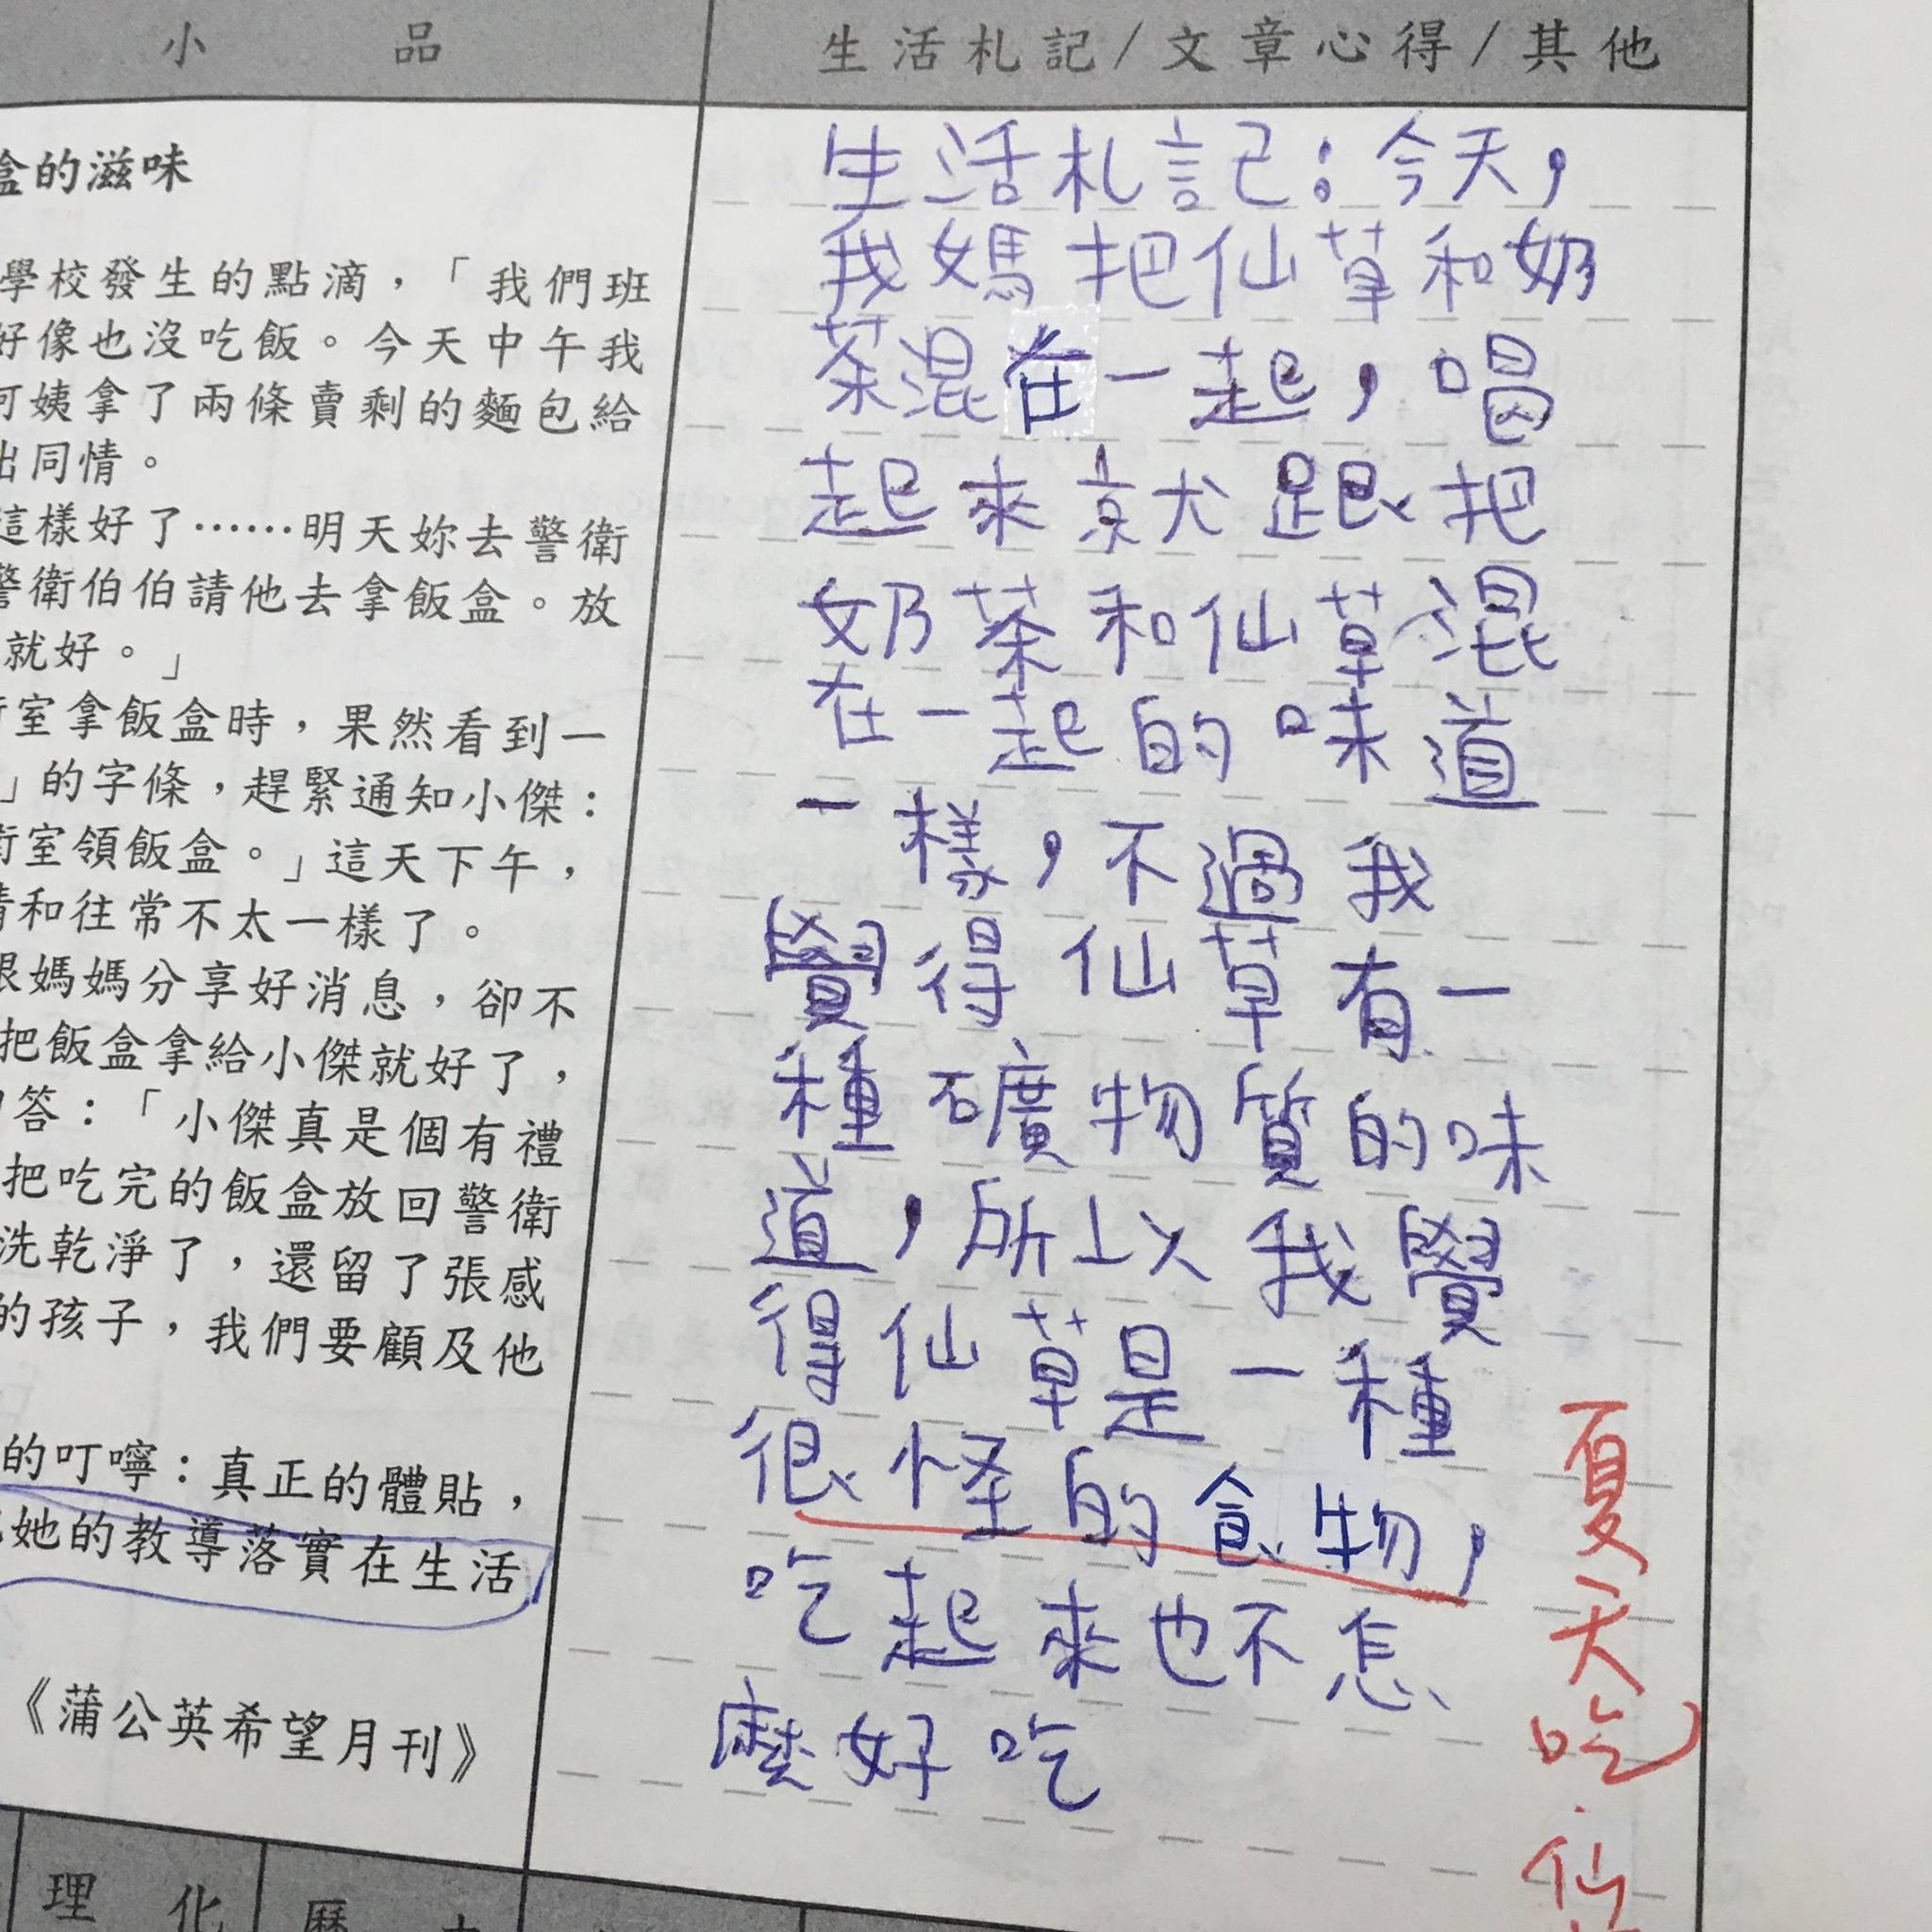 小品
生活札記/文章心得/其他
盒的滋味
學校發生的點滴，「我們班
好像也沒吃飯。今天中午我
阿姨拿了兩條賣剩的麵包給
出同情。
這樣好了……明天妳去警衛
警衛伯伯請他去拿飯盒。放
就好。」
室拿飯盒時，果然看到一
」的字條，趕緊通知小傑：
衛室領飯盒。」這天下午，
情和往常不太一樣了。
跟媽媽分享好消息，卻不
把飯盒拿給小傑就好了，
答：「小傑真是個有禮
把吃完的飯盒放回警衛
洗乾淨了，還留了張感
的孩子，我們要顧及他
的叮嚀：真正的體貼，
她的教導落實在生活
《蒲公英希望月刊》
生活札記：今天，
我媽把仙草和奶
茶混在一起，喝
起來就跟把
奶茶和仙草混
在一起的味道
一樣，不過我
覺得仙草有一
種礦物質的味
道，所以我覺
得仙草是一種
很怪的食物，
吃起來也不怎
麼好吃
夏天吃仙
理化
歷